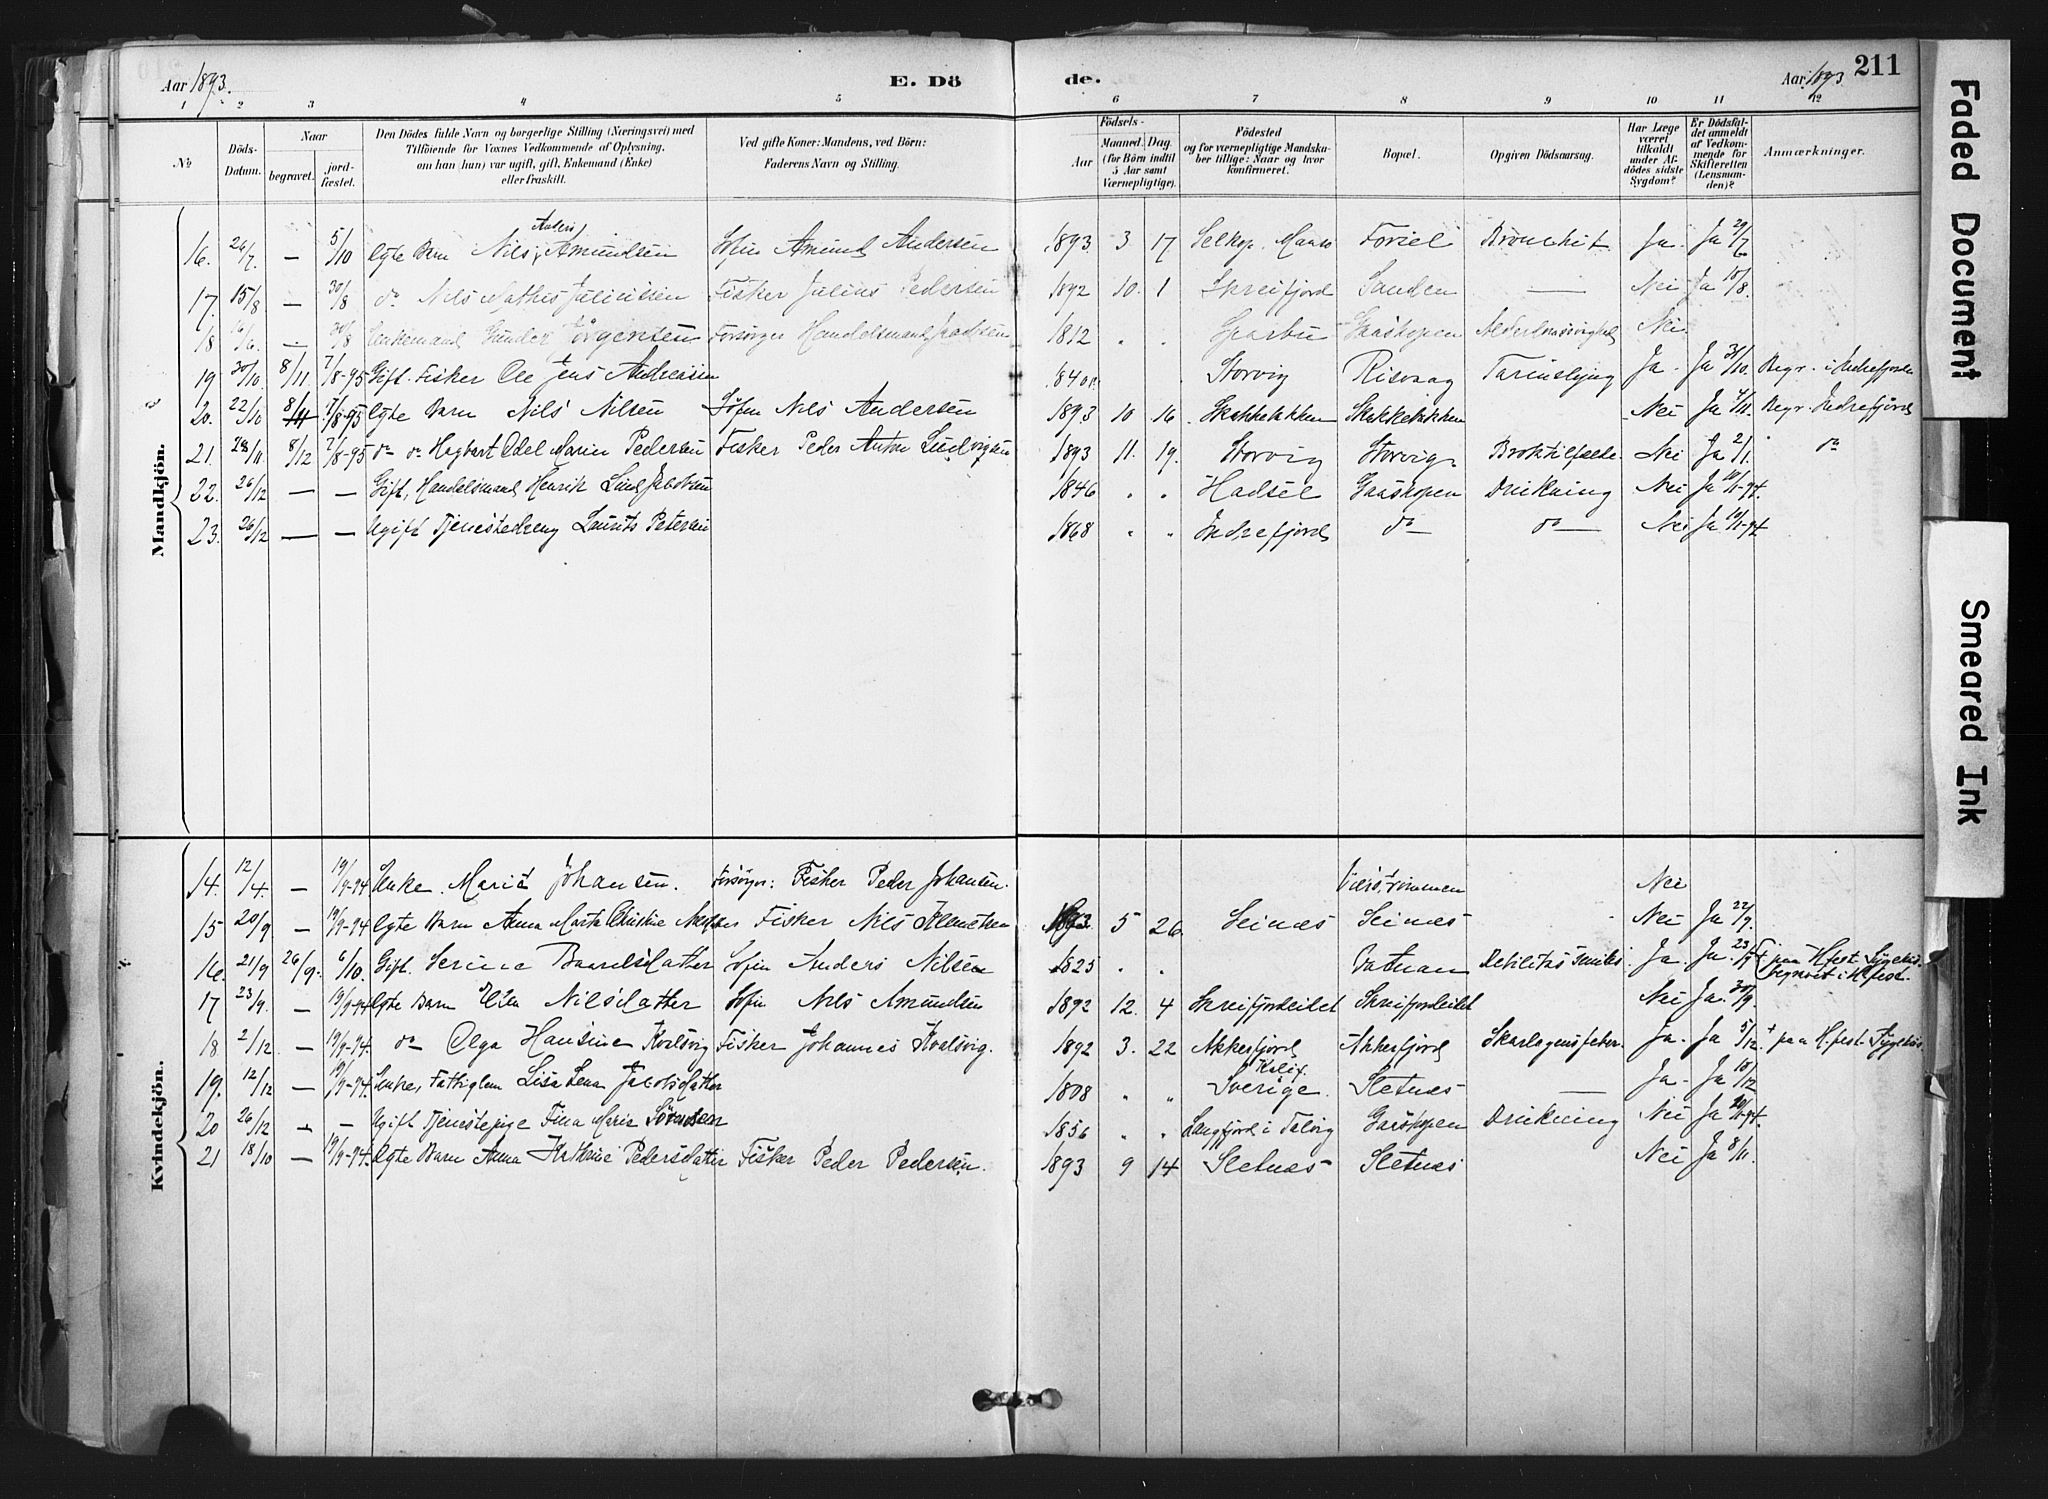 Aar 1893. E. Dö de. Aar 1893. 211
1 2 3 4 5 6 7 8 9 10 11 12
No
Döds-Datum.
Naar begravet. jord-fæstet.
Den Dödes fulde Navn og borgerlige Stilling (Næringsvei) med
Tilföiende for Voxnes Vedkommende af Oplysning,
om han (hun) var ugift, gift, Enkemand (Enke)
eller fraskilt.
Ved gifte Koner: Mandens, ved Börn:
Faderens Navn og Stilling.
Födsels-
Aar Maaned. Dag.
(for Börn indtil
5 Aar samt
Værnepligtige).
Födested
og for værnepligtige Mandska-
ber tillige: Naar og hvor
konfirmeret.
Bopæl.
Opgiven Dödsaarsag.
Har Læge
været
tilkaldt
under Af-
dödes sidste
Sygdom?
Er Dödsfal-
det anmeldt
af Vedkom-
mende for
Skifteretten
(Lensman-
den)?
Anmærkninger.
Mandkjön.
Anders
16. 26/7. — 5/10 Ægte Barn Nils Amundsen Søfin Amund Andersen 1893 3 17 Selkop. Føriel Bronchit Ja. Ja
17. 15/8 — 30/8 do Nils Mathis Juliussen Fisker Julius Pedersen 1892 10. 1 Skreifjord Sanden — Nei Ja 18/8.
18 — Enkemand Gunder Jørgensen Forsørger Handelsmand 1812 " " Sparbu Gaaskopen Alderdomssvaghed Nei.
19. 30/10. 8/11 7/8-95 Gift. Fisker Ole Jens Andreassen 1840 Storvig Risvaag Ja. Ja 31/10. Begr. i Indrefjorden
20. 22/10 8/11 7/8-95 Ægte Barn Nils Nilsen Søfin Nils Andersen 1893 10 16 Skakkebakken Skakkebakken Nei Ja Begr. Indrefjord
21. 28/11 8/12 7/8-95 do do Hagbart Odel Marin Pedersen Fisker Peder Anton Ludvigsen 1893 11. 19. Storvig Storvig Broktilfælde. Nei Ja 2/1. do
22. 26/12 — — Gift, Handelsmand Henrik Lind Jakobsen 1846 " " Hadsel Gaaskopen Drukning Nei Ja 10/1-94.
23. 26/12 — — Ugift Tjenestedreng Laurits Petersen 1868 " " Indrefjord do — do — Nei Ja 10/1-94
Kvindekjön.
14. 12/4 — 19/9-94 Enke. Marie Johansen. Forsørger: Fisker Peder Johansen. Nei
15 20/9. — 19/9-94 Ægte Barn Anna Marta Christine Fisker Nils Klemetsen 1893 5 26 Seinæs Seinæs Nei Ja 22/9.
16. 21/9 26/9. 6/10. Gift. Serine Baardsdatter Søfin Anders Nilsen 1825 " " Vatnan Debilitas senilis. Ja. Ja. 23/9 † paa Hfest Sygehus. begravet i Hfest.
17 23/9. — 19/9-94 Ægte Barn Elen Nilsdatter Søfin Nils Amundsen 1892 12. 4 Skreifjordeidet Skreifjordeidet Nei Ja. 30/9.
18. 2/12. — 19/9-94. do Olga Hansine Kvalsvig Fisker Johannes Kvalsvig. 1892 3. 22 Akkerfjord Akkerfjord Skarlagensfeber. Ja. Ja 5/12. † paa H.fest Sygehus.
19. 12/12 — 19/9-94. Enke, Fattiglem Lisa Lena Jacobsdatter 1808 " " Kalix Sverige. Sletnæs — Ja. Ja 18/12
20 26/12 — — Ugift Tjenestepige Fina Marie Sørensen 1856 " " Langfjord i Talvig Gaaskopen Drukning Nei Ja 10/1-94.
21 18/10 — 19/9-94. Ægte Barn Anna Kathrine Pedersdatter Fisker Peder Pedersen. 1893 9 14 Sletnæs Sletnæs Nei Ja 8/11.
Faded Document
Smeared Ink